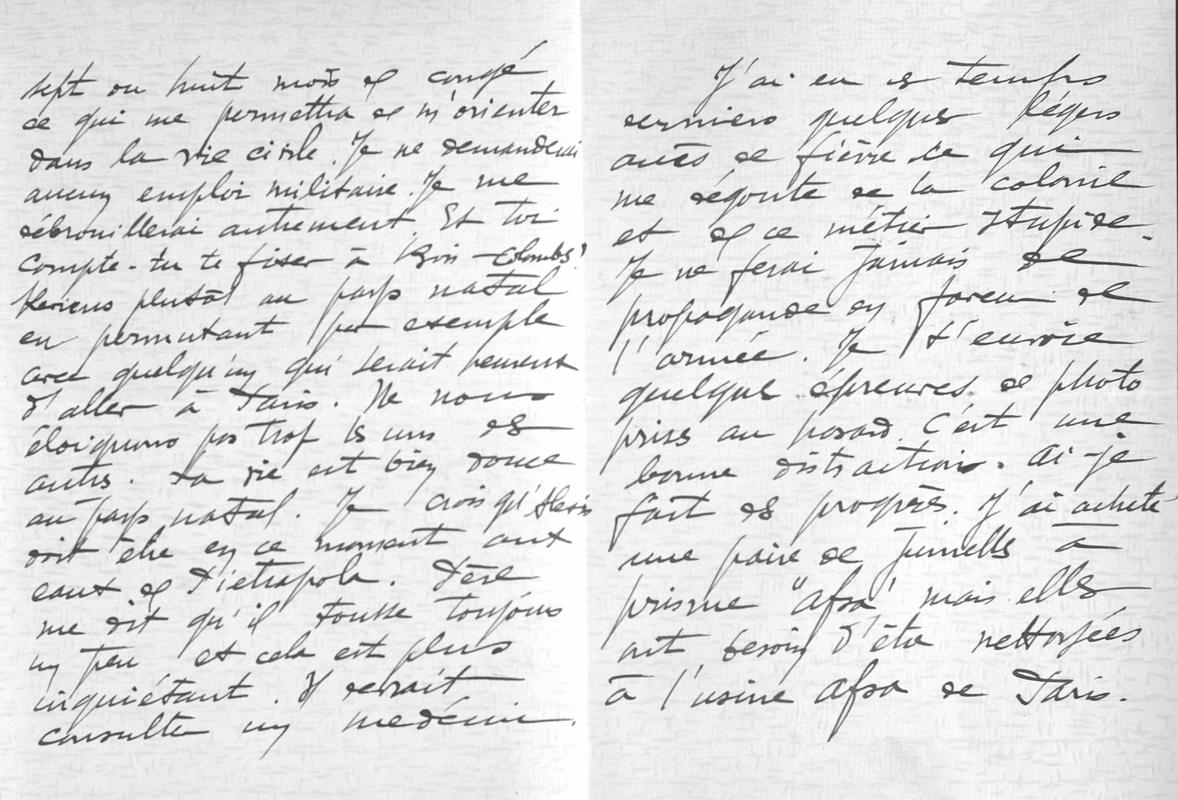 sept ou huit mois de congé
ce qui me permettra de m'orienter
dans la vie civile. Je ne demanderai
aucun emploi militaire. Je me
débrouillerai autrement. Et toi
compte-tu te fixer à Bois-Colombes?
Reviens plutôt au pays natal
en permutant par exemple
avec quelqu'un qui serait heureux
d'aller à Paris. Ne nous
éloignons pas trop les uns des
autres. La vie est bien douce
au pays natal. Je crois qu'Alexis
doit être en ce moment aux
eaux de Pietrapola. Père
me dit qu'il tousse toujours
un peu et cela est plus
inquiétant. Il devrait
consulter un medécin.
J'ai eu ces temps
derniers quelques légers
accès de fièvre ce qui
me dégoute de la colonie
et de ce métier stupide.
Je ne ferai jamais de
propagande en faveur de
l'armée. Je t'envoie
quelques épreuves de photo
prises au hasard. C'est une
bonne distraction. Ai-je
fait des progrès. J'ai acheté
une paire de jumelles à
prisme "Afsa" mais elles
ont besoin d'être nettoyées
à l'usine Afsa de Paris.